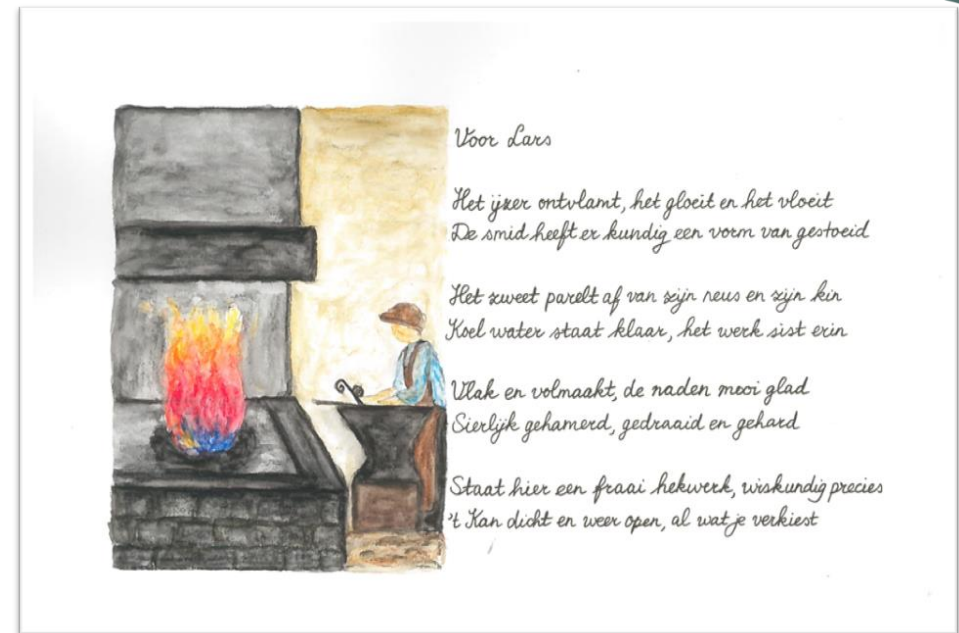 Voor Lars
Het ijzer ontvlamt, het gloeit en het vloeit
De smid heeft er kundig een vorm van gestoeid
Het zweet parelt af van zijn neus en zijn kin
Koel water staat klaar, het werk sist erin
Vlak en volmaakt, de naden mooi glad
Sierlijk gehamerd, gedraaid en gehard
Staat hier een fraai hekwerk, wiskundig precies
't Kan dicht en weer open, al wat je verkiest